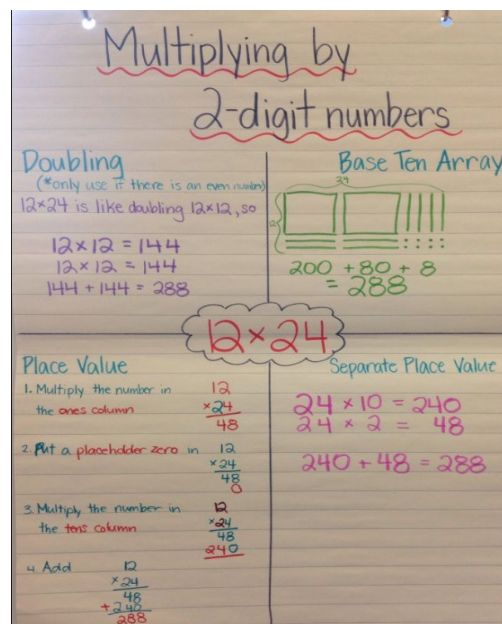 Multiplying by
2-digit numbers
Doubling
(*only use if there is an even number)
12×24 is like doubling 12×12, so
12×12 = 144
12×12 = 144
144 + 144 = 288
Base Ten Array
24
12
200 + 80 + 8
= 288
12×24
Place Value
1. Multiply the number in
the ones column
12
×24
48
2. Put a placeholder zero in
12
×24
48
0
3. Multiply the number in
the tens column
12
×24
48
240
4. Add
12
×24
48
+240
288
Separate Place Value
24 × 10 = 240
24 × 2 = 48
240 + 48 = 288